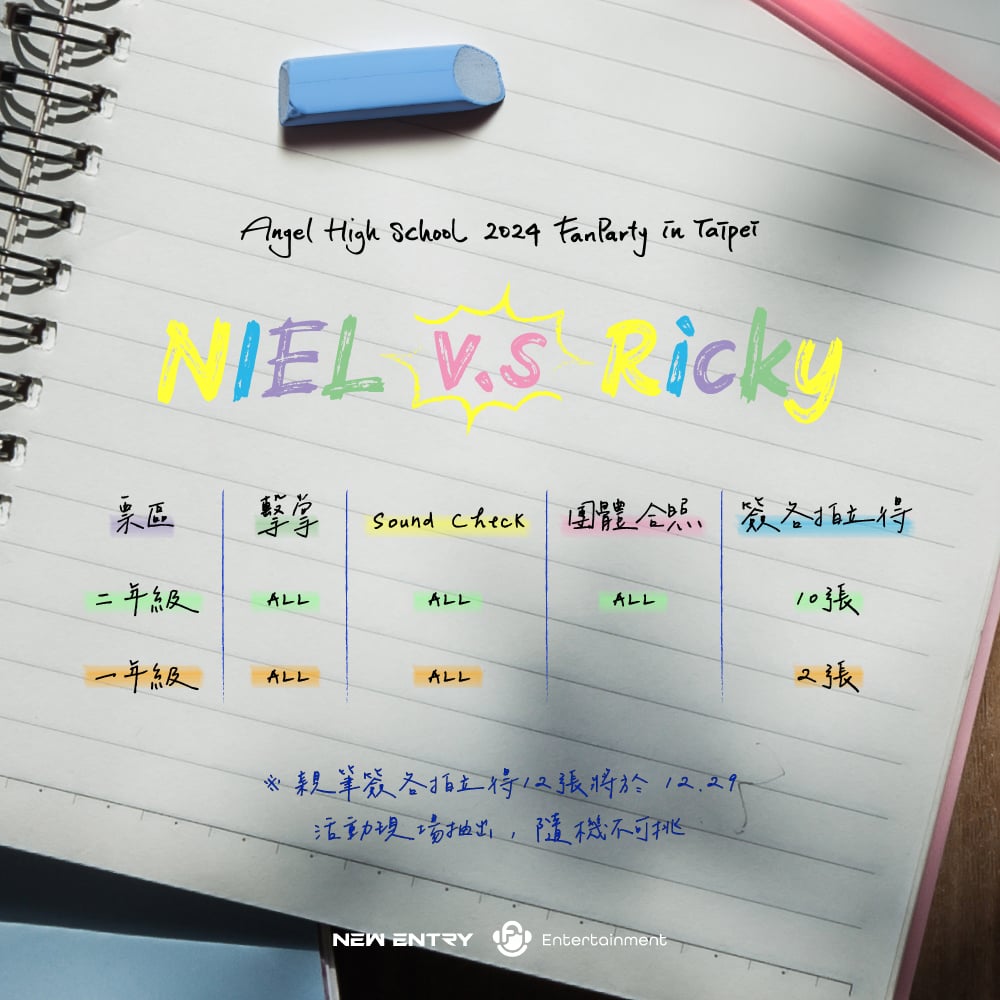 Angel High School 2024 FanParty in Taipei
NIEL V.S Ricky
票區 擊掌 Sound Check 團體合照 簽名拍立得
二年級 ALL ALL ALL 10張
一年級 ALL ALL 2張
※ 親筆簽名拍立得12張將於 12.29
活動現場抽出，隨機不可挑
NEW ENTRY Entertainment